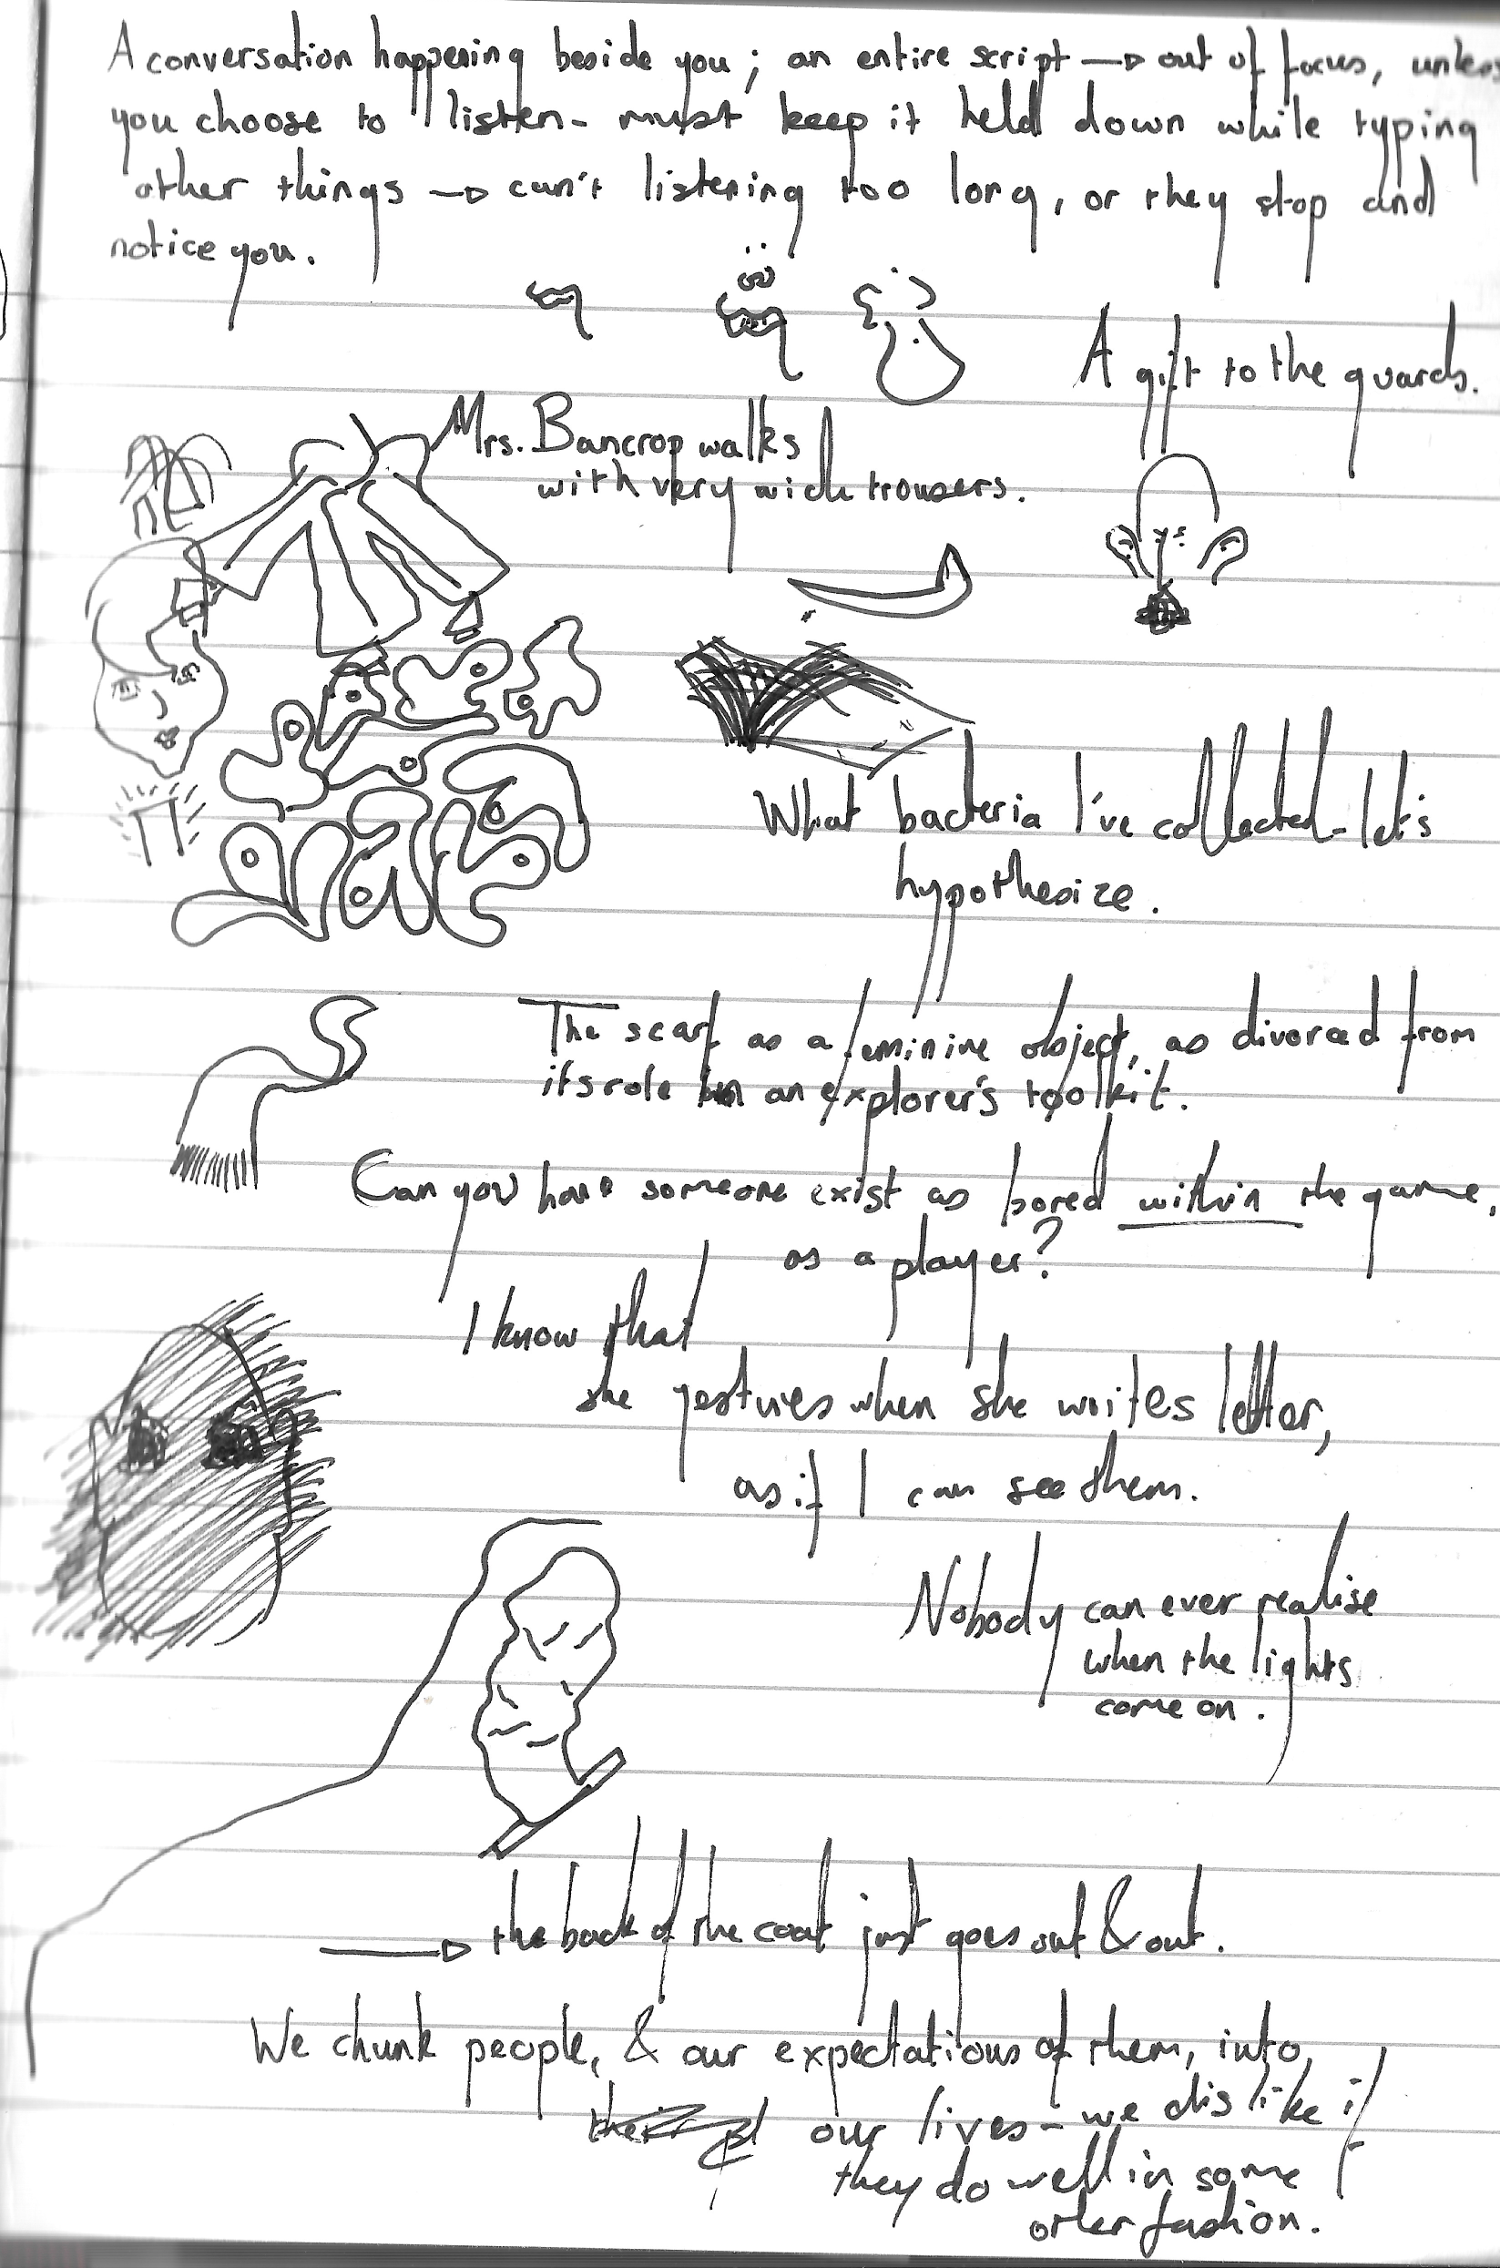 A conversation happening beside you; an entire script → out of focus, unless
you choose to listen - must keep it held down while typing
other things → can't listening too long, or they stop and
notice you.
A gift to the guards.
Mrs. Bancrop walks
with very wide trousers.
What bacteria I've collected - let's
hypothesize.
The scarf as a feminine object, as divorced from
its role in an explorer's toolkit.
Can you have someone exist as bored within the game,
as a player?
I know that
she gestures when she writes letter,
as if I can see them.
Nobody can ever realise
when the lights
come on.
→ the back of the coat just goes out & out.
We chunk people, & our expectations of them, into,
our lives - we dislike if
they do well in some
other fashion.